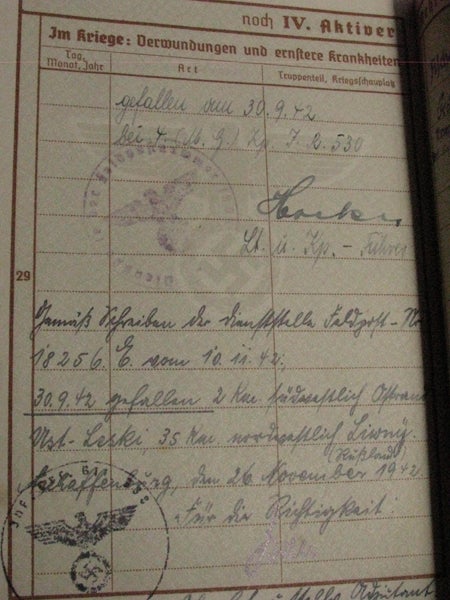 noch IV. Aktiver
Im Kriege: Verwundungen und ernstere Krankheiten
Tag, Monat, Jahr
Art
Truppenteil, Kriegsschauplatz
gefallen am 30.9.42
bei 4. (M.G.) Kp. I. R. 530
Lt. u. Kp. - Führer
29
Gemäß Schreiben der Dienststelle Feldpost - Nr
18256 E. vom 10.11.42;
30.9.42 gefallen 2 Km südwestlich Ostrand
Ust-Leski, 35 Km nordwestlich Liwny.
(Rußland)
Aschaffenburg, den 26. November 1942.
Für die Richtigkeit:
Adjutant